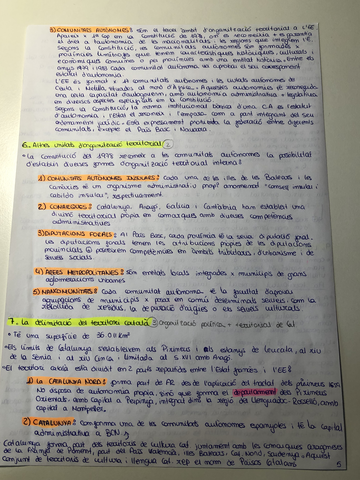 3) COMUNITATS AUTÒNOMES: són el tercer àmbit d'organització territorial a l'EE
Segons la Constitució, les comunitats autònomes són formades x
províncies limítrofes que tenen característiques històriques, culturals i
econòmiques comunes o pel províncies amb una entitat històrica. Entre els
anys 1979 i 1983 cada comunitat autònoma va aprovar el seu corresponent
estatut d'autonomia.
L'EE és format x 17 comunitats autònomes i les ciutats autònomes de
Ceuta i Melilla, situades al nord d'Àfrica. Aquestes autonomies et
una certa capacitat d'autogovern amb autonomia administrativa i legislativa
en diversos aspectes especificats en la Constitució.
Segons la Constitució la norma institucional bàsica d'una C.A és l'estatut
d'autonomia, i l'Estat el reconeix i l'empara com a part integrant del seu
ordenament jurídic. Està expressament prohibida la federació entre diverses
comunitats. Excepte el País Basc i Navarra
6. Altres Unitats d'organització territorial
• La Constitució del 1978 reconeix a les comunitats autònomes la possibilitat
d'establir diverses formes d'organització territorial interna:
1) COMUNITATS AUTÒNOMES INSULARS: Cada una de les illes de les Balears i les
Canàries té un organisme administratiu propi anomenat "consell insular i
cabildo insular", respectivament
2) COMARQUES: Catalunya, Aragó, Galícia i Cantàbria han establert una
divisió territorial pròpia en comarques amb diverses competències
administratives
3) DIPUTACIONS FORALS: Al País Basc, cada província té la seva diputació foral.
Les diputacions forals tenen les atribucions pròpies de les diputacions
provincials i posseeixen competències en àmbits tributaris, d'urbanisme i de
serveis socials.
4) ÀREES METROPOLITANES: són entitats locals integrades x municipis de grans
aglomeracions urbanes
5) MANCOMUNITATS: Cada comunitat autònoma té la facultat d'aprovar
agrupacions de municipis x posar en comú determinats serveis, com la
recollida de residus, la depuració d'aigües o els serveis culturals
7. La delimitació del territori català organització política - territorial de Cat
• Té una superfície de
• Els límits de Catalunya s'estableixen als Pirineus i als estanys de Leucata, al riu
de la Sénia i al riu Cinca i limitada al S xVI amb Aragó.
• El territori català està dividit en 2 parts repartides entre l'Estat francès i l'EE:
1) la CATALUNYA NORD: forma part de FR des de l'aplicació del tractat dels Pirineus 1659
No disposa de autonomia pròpia, sinó que forma el departament dels Pirineus
Orientals, amb capital a Perpinyà, integrat dins la regió del Llenguadoc-Rosselló, amb
capital a Montpeller.
2) CATALUNYA: conforma una de les comunitats autònomes espanyoles i té la capital
administrativa a BCN.
Catalunya forma part dels territoris de cultura cat juntament amb les comarques aragoneses
de la Franja de Ponent, part del País Valencià, illes Balears, Cat. Nord, Sardenya, Aquest
conjunt de territoris de cultura i llengua cat rep el nom de Països Catalans
5